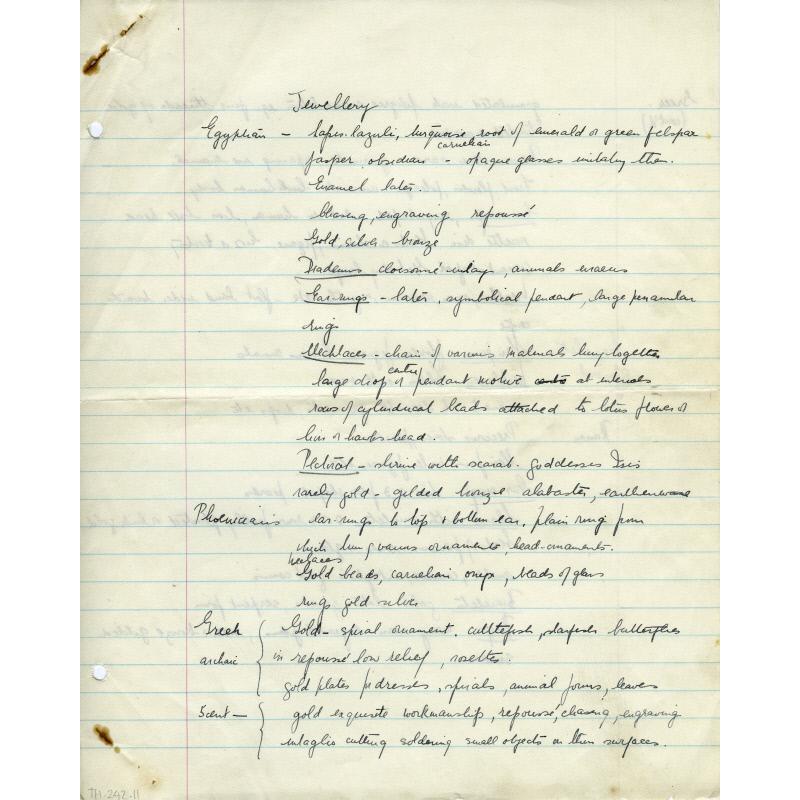 Jewellery
Egyptian – lapis-lazuli, turquoise, root of emerald or green felspar
carnelian
jasper obsidian – opaque glasses imitating them.
Enamel later.
Chasing, engraving repoussé
Gold, silver bronze
Diadems cloisonné inlay, animals uraeus
Ear-rings – later, symbolical pendant, large penannular
rings
Necklaces – chain of various materials hung together
centre
large drop or pendant motive at intervals
rows of cylindrical beads attached to lotus flower or
lion or hawks head.
Pectoral – shrine with scarab. goddesses Isis
rarely gold – gilded bronze alabaster, earthenware
Phoenicians ear-rings to top & bottom ear, plain ring from
which hung various ornaments, head-ornaments.
necklaces
Gold beads, carnelian onyx, beads of glass
rings gold silver
Greek Gold – spiral ornament. cuttlefish, starfish butterflies
archaic in repoussé low relief, rosettes.
gold plates dresses, spirals, animal forms, leaves
5 cent – gold exquisite workmanship, repoussé, chasing, engraving
intaglio cutting soldering small objects on thin surfaces.
TH.242.11